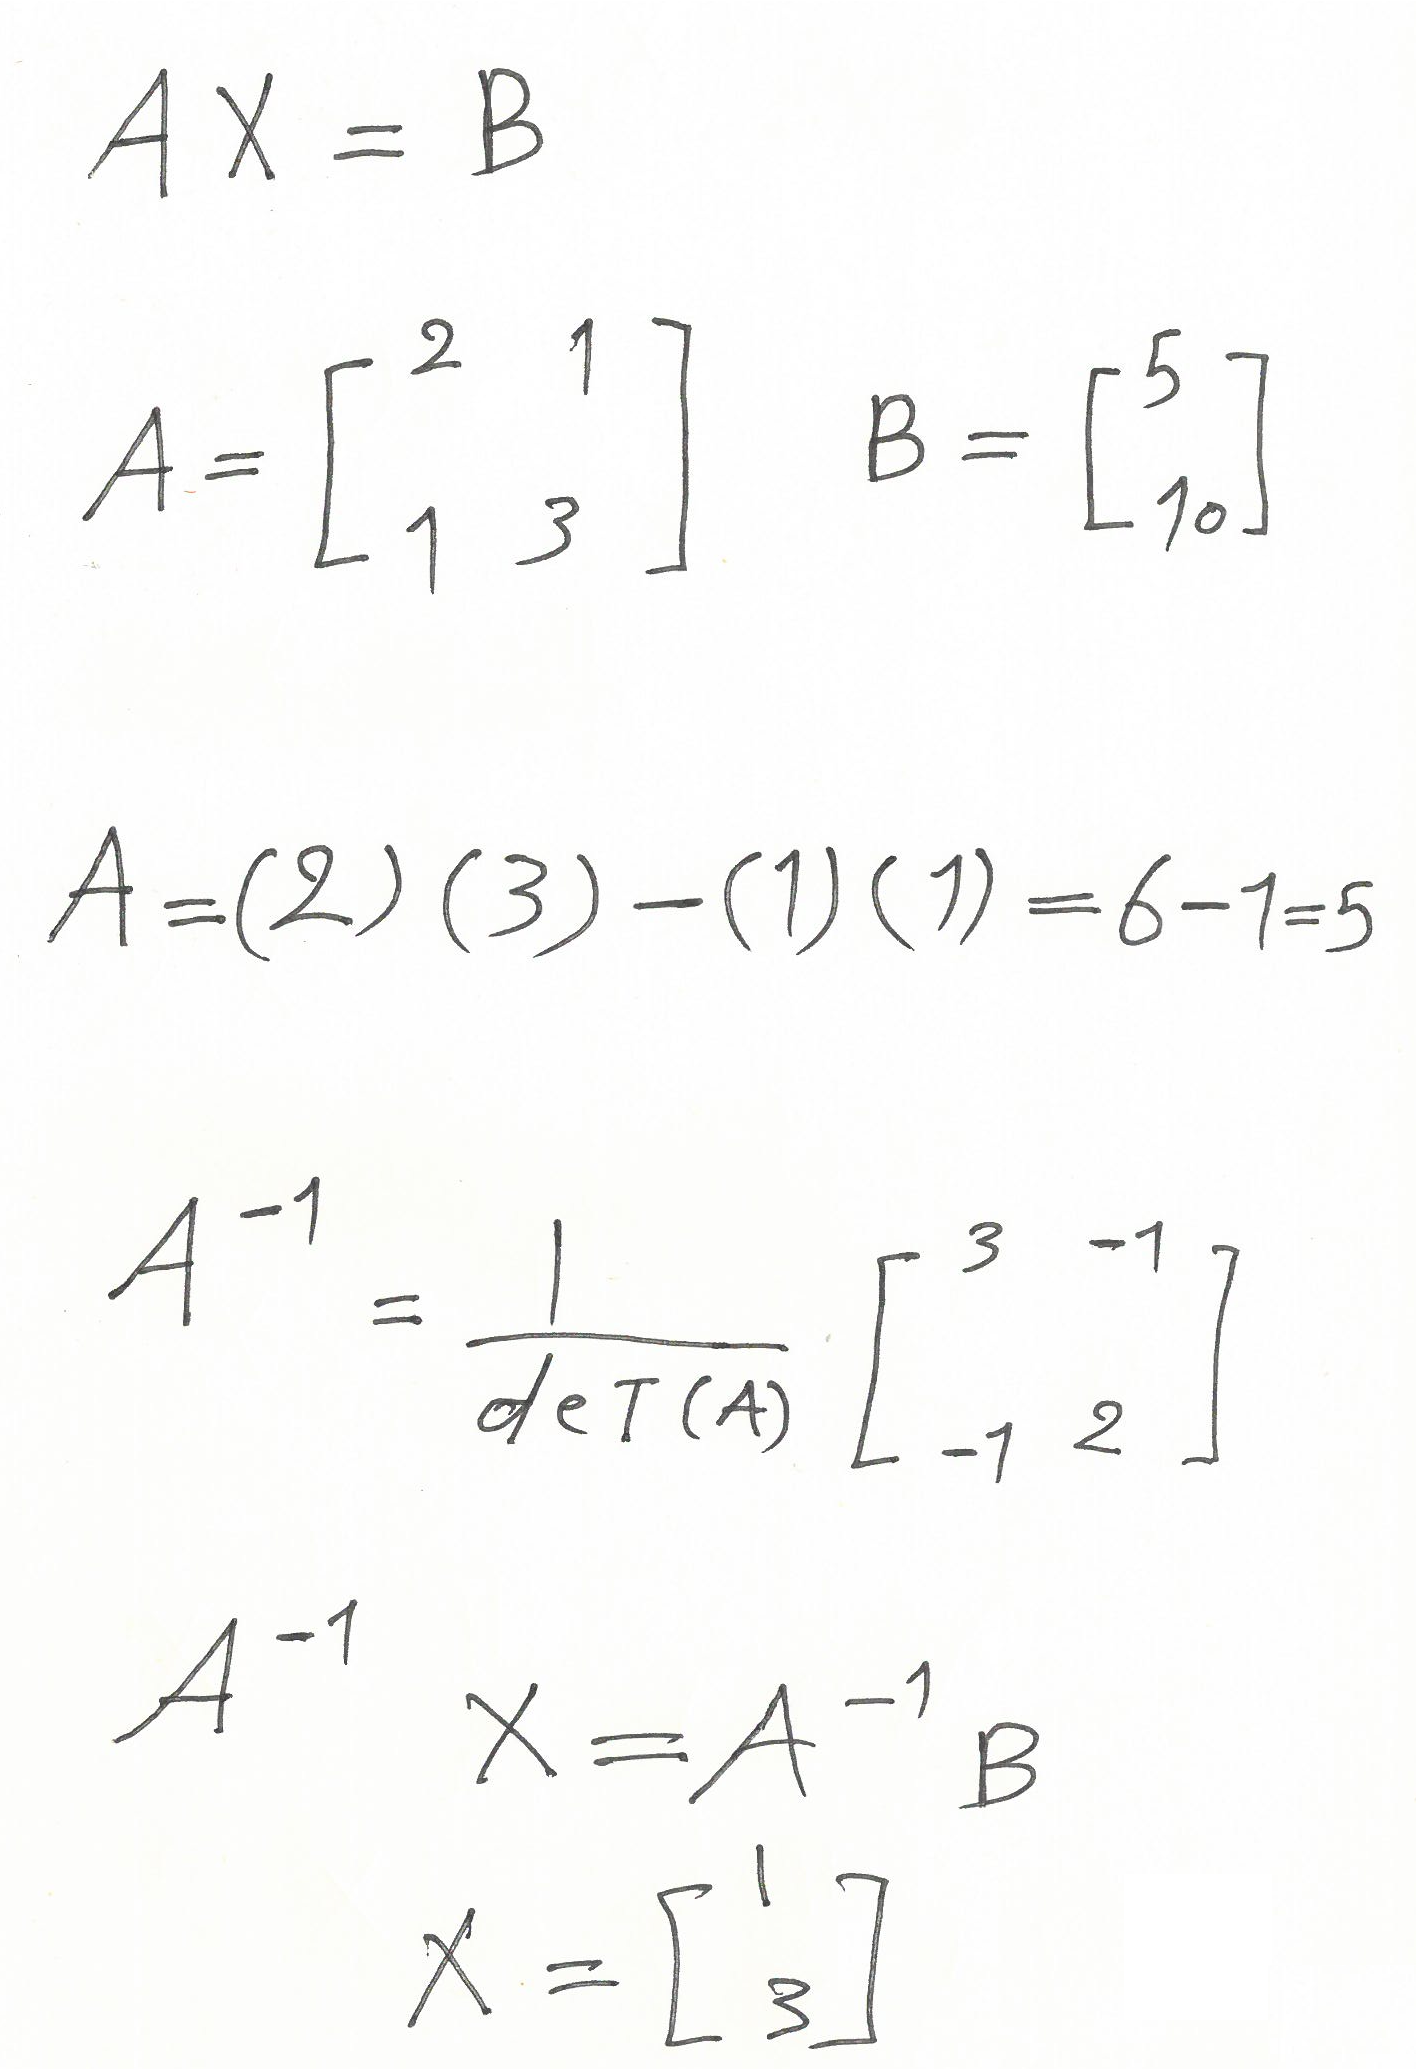 AX = B
A = [2 1; 1 3] B = [5; 10]
A = (2)(3) - (1)(1) = 6 - 1 = 5
A^-1 = 1/deT(A) [3 -1; -1 2]
A^-1 X = A^-1 B
X = [1; 3]